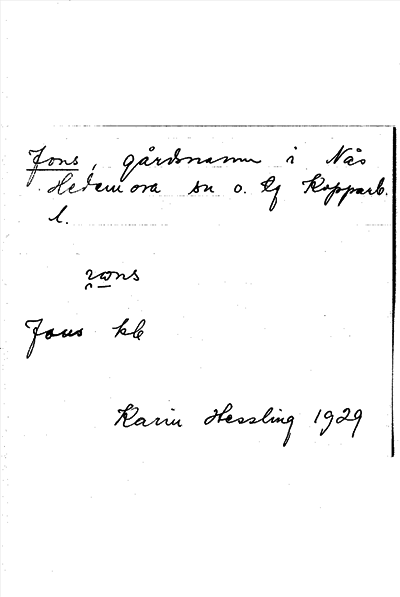 Jons, gårdsnamn i Nås
Hedemora sn o. tg Kopparb.
l.
Jons kb
Karin Hessling 1929